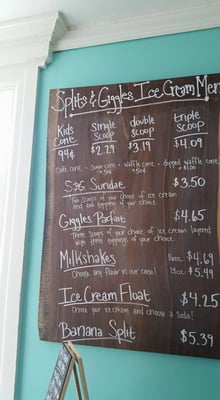 Splits & Giggles Ice Cream Men
Kids Cone 94¢
single scoop $2.29
double scoop $3.19
triple scoop $4.09
Cake cone • Sugar cone • Waffle cone • dipped waffle cone
S&G Sundae $3.50
Two scoops of your choice of ice cream
and two toppings of your choice
Giggles Parfait $4.65
Three scoops of your choice of ice cream layered
with three toppings of your choice.
Milkshakes $4.69
Choose any flavor in our case! $5.49
Ice Cream Float $4.25
Choose your ice cream and choose a soda!
Banana Split $5.39